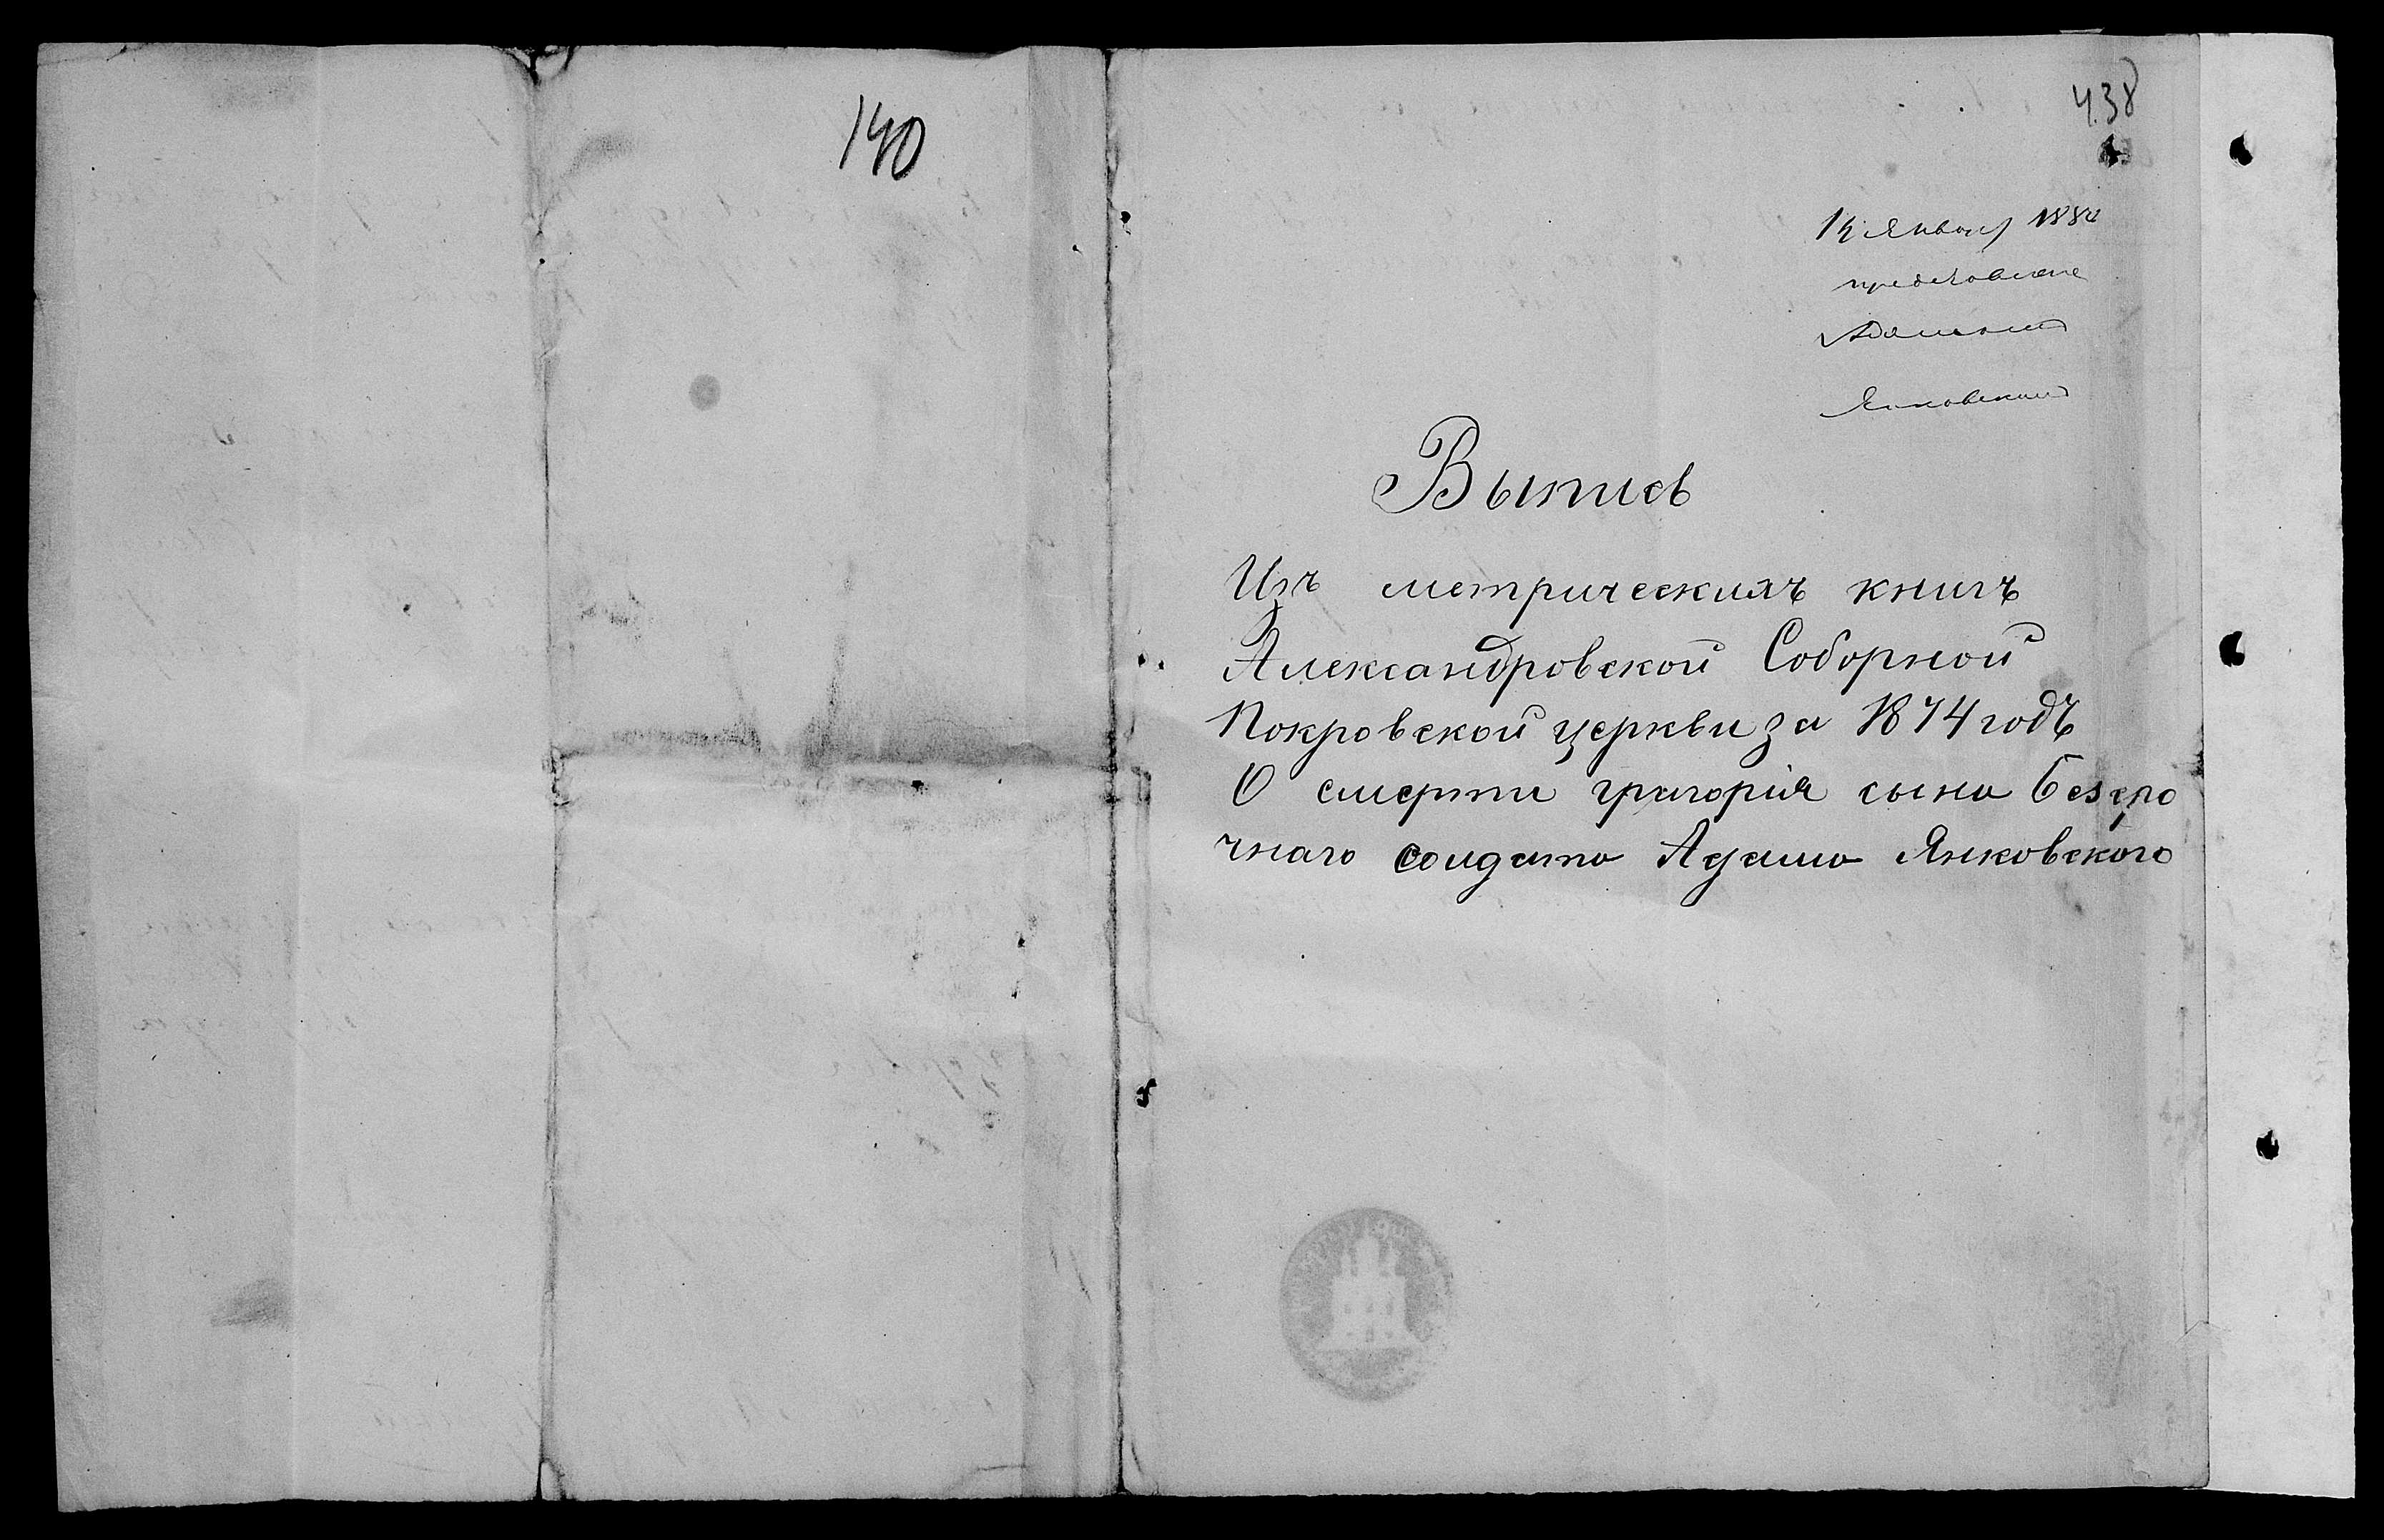 140
438
Января 188
Адамомъ
Янковскимъ
Выпись
Изъ метрическихъ книгъ
Александровской Соборной
Покровской церкви за 1874 годъ
О смерти григорія сына безсро
чнаго солдата Адама Янковского